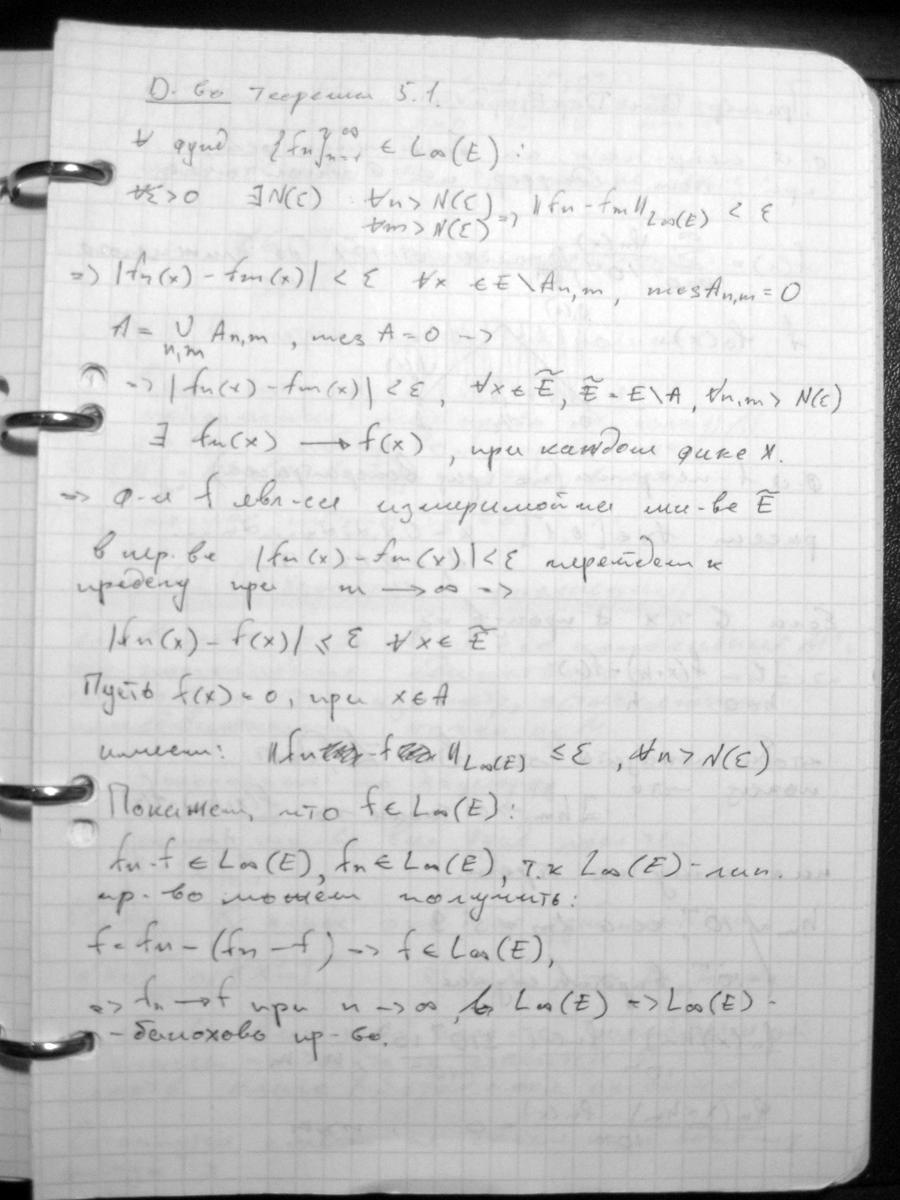 Д-во теоремы 5.1.
∀ фунд {fn}_{n=1}^∞ ∈ L∞(E):
∀ε>0 ∃N(ε) : ∀n> N(ε) => ||fn - fm||_{L∞(E)} < ε
∀m> N(ε)
=> |fn(x) - fm(x)| < ε ∀x ∈ E\An,m, mes An,m = 0
A = ∪_{n,m} An,m, mes A = 0 =>
=> |fn(x) - fm(x)| < ε, ∀x ∈ Ẽ, Ẽ = E\A, ∀n,m > N(ε)
∃ fn(x) → f(x), при каждом фикс x.
=> ф-я f явл-ся измеримой на мн-ве Ẽ
в нер-ве |fn(x) - fm(x)| < ε перейдем к
пределу при m → ∞ =>
|fn(x) - f(x)| ≤ ε ∀x ∈ Ẽ
Пусть f(x) = 0, при x∈A
имеем: ||fn - f||_{L∞(E)} ≤ ε, ∀n> N(ε)
Покажем, что f ∈ L∞(E):
fn - f ∈ L∞(E), fn ∈ L∞(E), т.к L∞(E) - лин.
пр-во можем получить:
f = fn - (fn - f) => f ∈ L∞(E),
=> fn → f при n → ∞ в L∞(E) => L∞(E) -
- банахово пр-во.